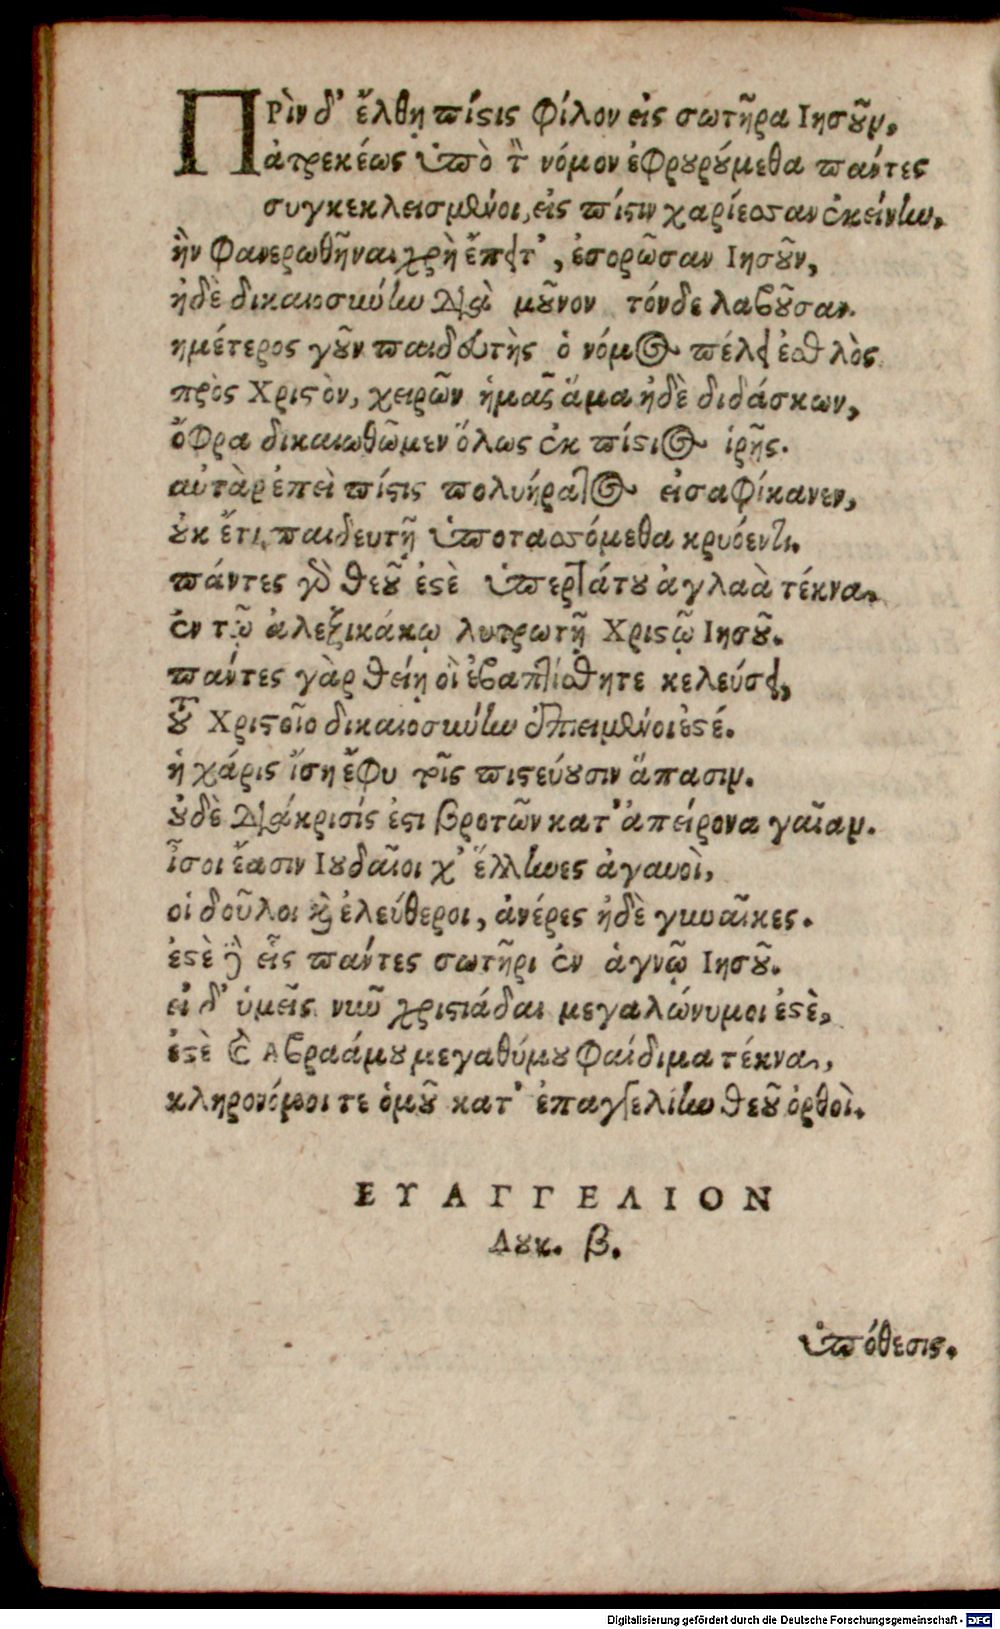 ΠΡὶν δ' ἔλθῃ πίστις φίλον εἰς σωτῆρα Ιησοῦν,
ἀτρεκέως ὑπὸ τὸν νόμον ἐφρουρούμεθα πάντες
συγκεκλεισμένοι, εἰς πίστιν χαρίεσσαν ἐκείνην,
ἣν φανερωθῆναι χρὴ ἔπειτ', ἐσορῶσαν Ιησοῦν,
ἠδὲ δικαιοσύνην διὰ μοῦνον τόνδε λαβοῦσαν.
ἡμέτερος γοῦν παιδευτὴς ὁ νόμος πέλει ἐσθλὸς
πρὸς Χριστὸν, χειρῶν ἡμᾶς ἅμα ἠδὲ διδάσκων,
ὄφρα δικαιωθῶμεν ὅλως ἐκ πίστιος ἱρῆς.
αὐτὰρ ἐπεὶ πίστις πολυήρατος εἰσαφίκανεν,
οὐκ ἔτι παιδευτῇ ὑποτασσόμεθα κρυόεντι.
πάντες γὰρ θεοῦ ἐστὲ ὑπερτάτου ἀγλαὰ τέκνα,
ἐν τῷ ἀλεξικάκῳ λυτρωτῇ Χριστῷ Ιησοῦ.
πάντες γὰρ θείῃ οἳ ἐβαπτίσθητε κελεύσει,
τοῦ Χριστοῖο δικαιοσύνην ἐπιειμένοι ἐστέ.
ἡ χάρις ἴση ἔφυ τοῖς πιστεύουσιν ἅπασιν.
οὐδὲ διάκρισίς ἐστι βροτῶν κατ' ἀπείρονα γαῖαν.
ἶσοι ἔασιν Ιουδαῖοι χ' ἕλληνες ἀγαυοὶ,
οἱ δοῦλοι καὶ ἐλεύθεροι, ἀνέρες ἠδὲ γυναῖκες.
ἐστὲ γὰρ εἷς πάντες σωτῆρι ἐν ἁγνῷ Ιησοῦ.
εἰ δ' ὑμεῖς νῦν χριστιάδαι μεγαλώνυμοι ἐστὲ,
ἐστὲ καὶ Αβραάμου μεγαθύμου φαίδιμα τέκνα,
κληρονόμοι τε ὁμοῦ κατ' ἐπαγγελίην θεοῦ ὀρθοὶ.
ΕΥΑΓΓΕΛΙΟΝ
Λουκ. β.
ὑπόθεσις.
Digitalisierung gefördert durch die Deutsche Forschungsgemeinschaft - DFG